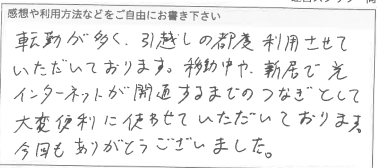 感想や利用方法などをご自由にお書き下さい
転勤が多く、引越しの都度利用させて
いただいております。移動中や、新居で光
インターネットが開通するまでのつなぎとして
大変便利に使わせていただいております。
今回もありがとうございました。